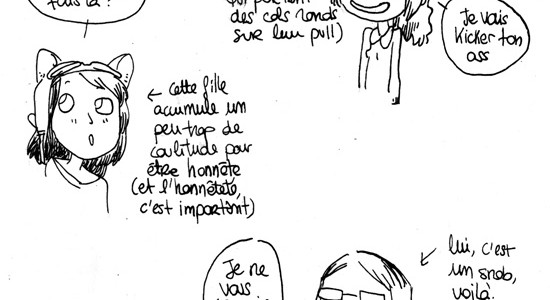 des cols ronds
sur leur pull)
Je vais
Kicker ton
ass
← cette fille
accumule un
peu trop de
coolitude pour
être honnête
(et l'honnêteté,
c'est important)
lui, c'est
un snob,
voilà.
Je ne
vais